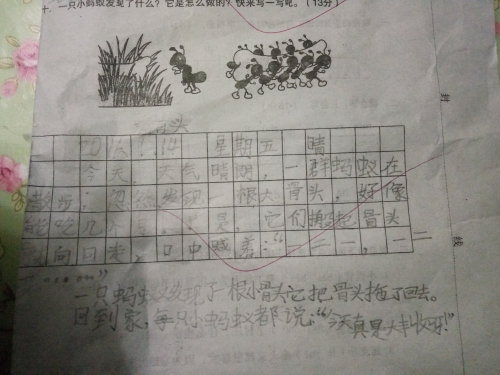 十、一只小蚂蚁发现了什么？它是怎么做的？快来写一写吧。（13分）
头
星期五 晴
今天，天气晴朗，一群蚂蚁在
散步，忽然发现一根大骨头，好像
能吃几天，于是，它们搬起骨头
向回走，口中喊着：“一二一，一
二
一只蚂蚁又发现了根小骨头它把骨头拖了回去。
回到家，每只小蚂蚁都说：“今天真是大丰收呀！”
封
线